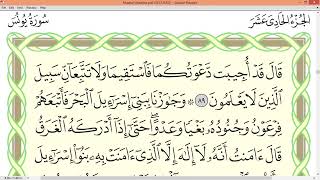 الجزء الحادي عشر
سورة يونس
قَالَ قَدْ أُجِيبَت دَّعْوَتُكُمَا فَاسْتَقِيمَا وَلَا تَتَّبِعَانِّ سَبِيلَ
الَّذِينَ لَا يَعْلَمُونَ ٨٩ ۞ وَجَاوَزْنَا بِبَنِي إِسْرَائِيلَ الْبَحْرَ فَأَتْبَعَهُمْ
فِرْعَوْنُ وَجُنُودُهُ بَغْيًا وَعَدْوًا حَتَّى إِذَا أَدْرَكَهُ الْغَرَقُ
قَالَ ءَامَنتُ أَنَّهُ لَا إِلَهَ إِلَّا الَّذِي ءَامَنَتْ بِهِ بَنُوا إِسْرَائِيلَ